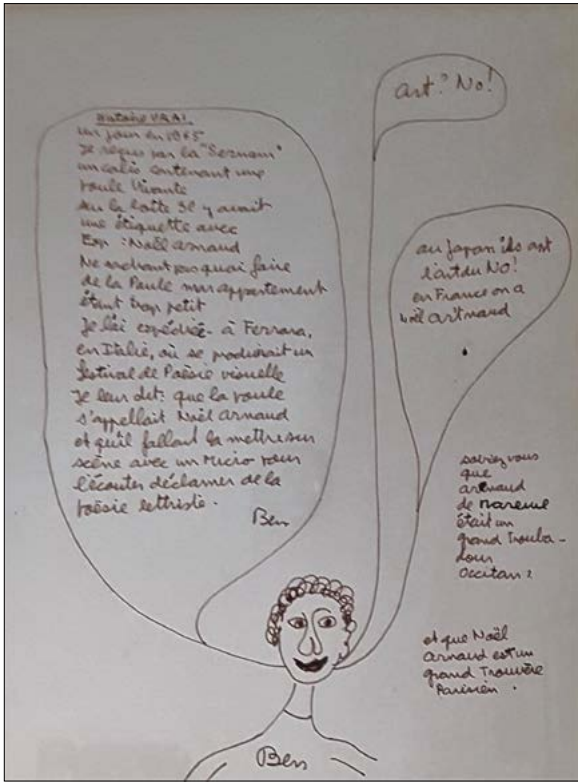 Histoire VRAI.
Un jour en 1965
Je reçus par la "Sernam"
un colis contenant une
Poule Vivante
sur la boite Il y avait
une étiquette avec
Exp : Noël Arnaud
Ne sachant pas quoi faire
de la Poule mon appartement
étant trop petit
Je l'ai expédiée à Ferrara,
en Italie, où se produisait un
festival de Poèsie visuelle
Je leur dit: que la poule
s'appellait Noël Arnaud
et qu'il fallait la mettre sur
scène avec un Micro pour
l'écouter déclamer de la
poèsie lettriste.
Ben
art? No!
au Japon ils ont
l'art du No!
en France on a
Noël art'naud
saviez vous
que
arnaud
de mareuil
était un
grand Trouba-
dour
Occitan?
et que Noël
Arnaud est un
grand Trouvère
Parisien.
Ben